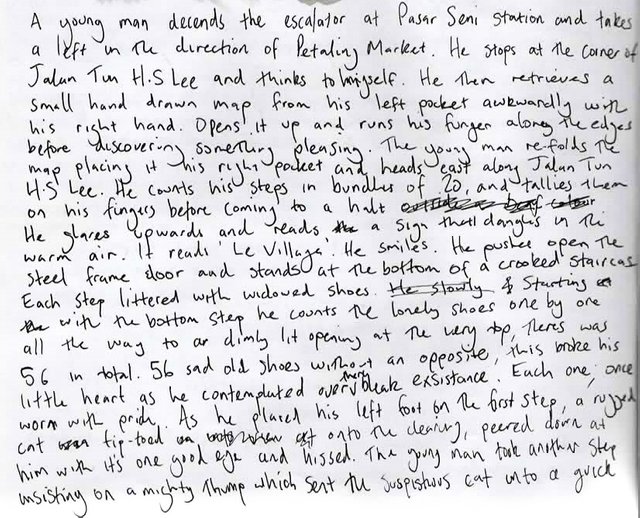 A young man decends the escalator at Pasar Seni Station and takes
a left in the direction of Petaling Market. He stops at the corner of
Jalan Tun H.S Lee and thinks to himself. He then retrieves a
small hand drawn map from his left pocket awkwardly with
his right hand. Opens it up and runs his funger along the edges
before discovering something pleasing. The young man re-folds the
map placing it his right pocket and heads east along Jalan Tun
H.S Lee. He counts his steps in bundles of 20, and tallies them
on his fingers before coming to a halt
He glares upwards and reads a sign that dangles in the
warm air. It reads 'Le Village'. He smiles. He pushes open the
steel frame door and stands at the bottom of a crooked staircas
Each step littered with widowed shoes. He slowly & Starting
with the bottom step he counts the lonely shoes one by one
all the way to a dimly lit opening at the very top, theres was
56 in total. 56 sad old shoes without an opposite, this broke his
little heart as he contemplated over their bleak exsistance. Each one, once
worn with pride. As he placed his left foot on the first step, a rugged
cat tip-toed onto the clearing, peered down at
him with it's one good eye and hissed. The young man took another step
insisting on a mighty thump which sent the suspistious cat into a quick